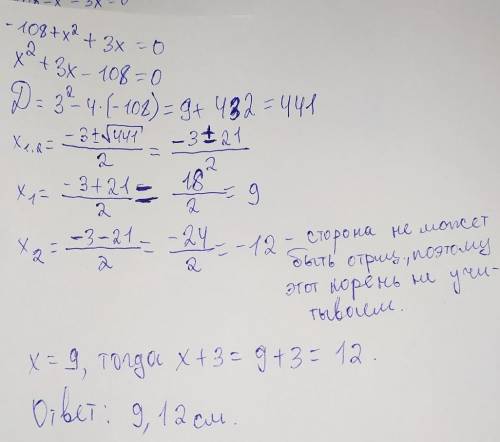 -108+x²+3x=0
x²+3x-108=0
D=3²-4·(-108)=9+432=441
x₁,₂=(-3±√441)/2=(-3±21)/2
x₁=(-3+21)/2=18/2=9
x₂=(-3-21)/2=-24/2=-12 - сторона не может
быть отриц., поэтому
этот корень не учи-
тываем.
x=9, тогда x+3=9+3=12.
Ответ: 9, 12 см.